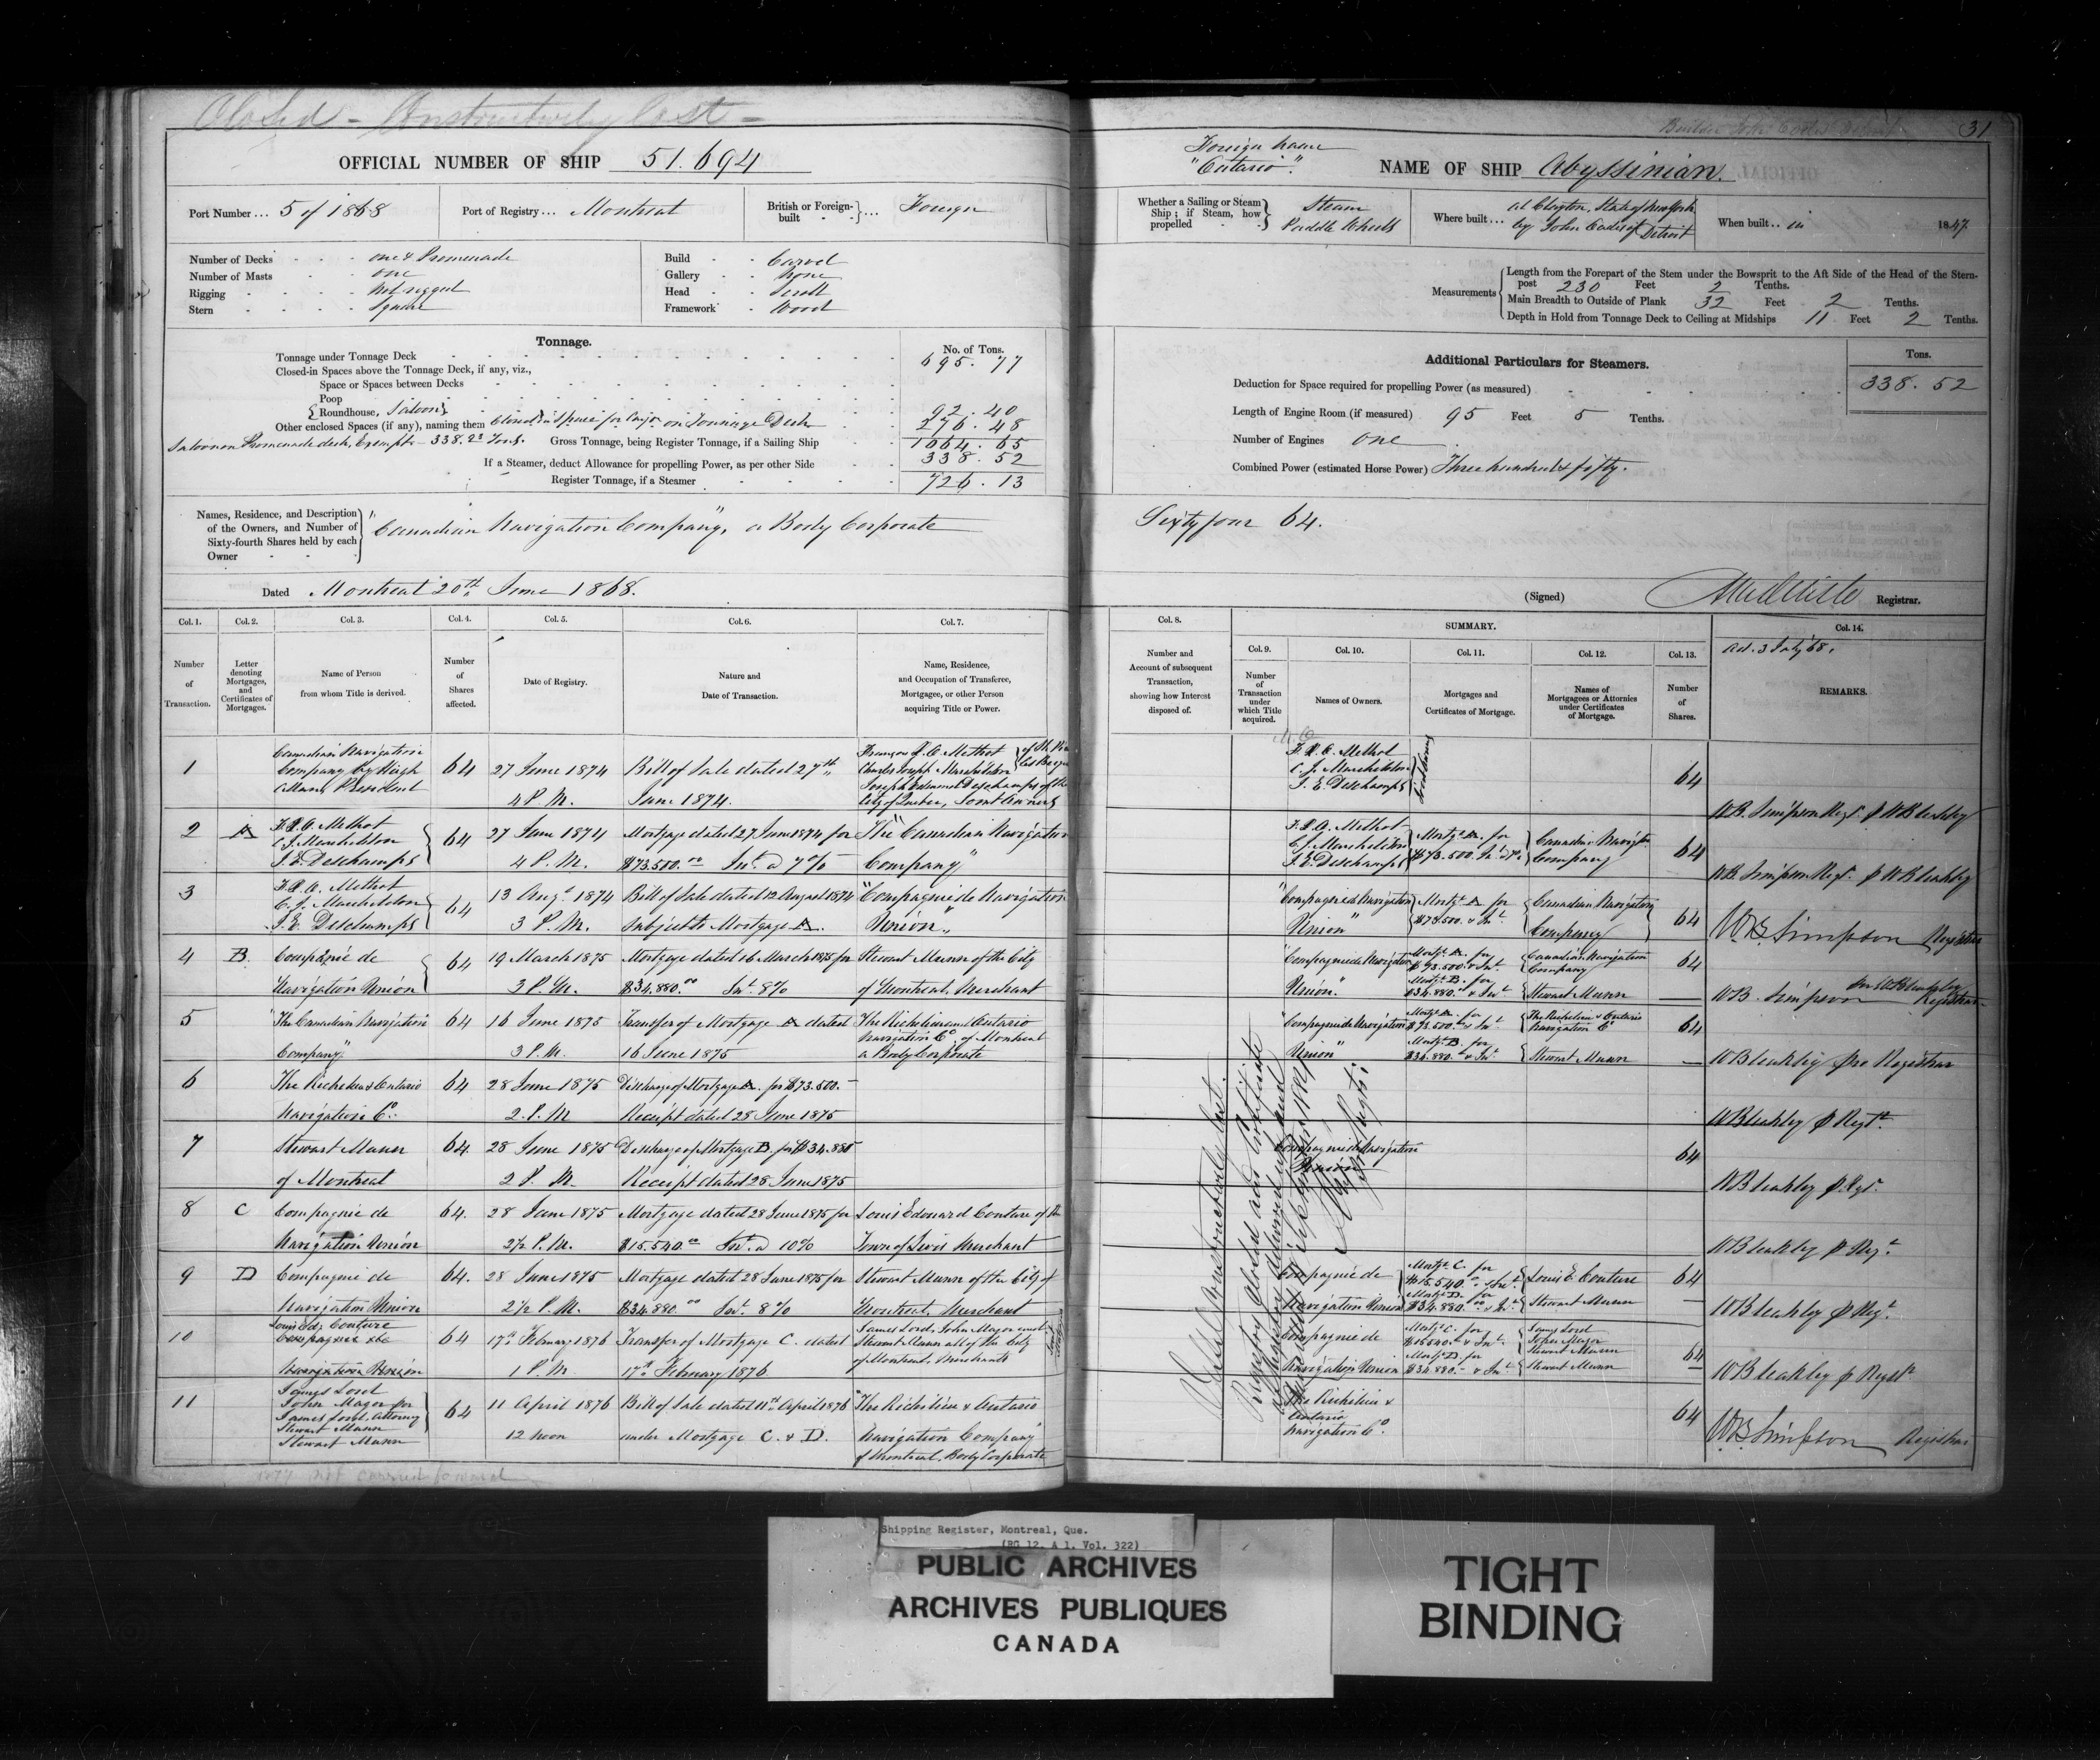 Closed - Constructively lost -
OFFICIAL NUMBER OF SHIP 51.694
Port Number ... 5 of 1868
Port of Registry ... Montreal
British or Foreign-built ... Foreign
Number of Decks one & Promenade
Number of Masts one
Rigging not rigged
Stern Square
Build Carvel
Gallery None
Head Scroll
Framework Wood
Tonnage.
No. of Tons.
Tonnage under Tonnage Deck 695.77
Closed-in Spaces above the Tonnage Deck, if any, viz.,
Space or Spaces between Decks
Poop
Roundhouse, Saloon 92.40
Other enclosed Spaces (if any), naming them Closed in space for Cargo on Tonnage Deck 276.48
Saloon on Promenade deck, Exempt - 338.23 Tons. Gross Tonnage, being Register Tonnage, if a Sailing Ship 1064.65
If a Steamer, deduct Allowance for propelling Power, as per other Side 338.52
Register Tonnage, if a Steamer 726.13
Names, Residence, and Description of the Owners, and Number of Sixty-fourth Shares held by each Owner
"Canadian Navigation Company", a Body Corporate
Dated Montreal 20th June 1868.
Col. 1. Col. 2. Col. 3. Col. 4. Col. 5. Col. 6. Col. 7.
Number of Transaction.
Letter denoting Mortgages, and Certificates of Mortgages.
Name of Person from whom Title is derived.
Number of Shares affected.
Date of Registry.
Nature and Date of Transaction.
Name, Residence, and Occupation of Transferee, Mortgagee, or other Person acquiring Title or Power.
1 Canadian Navigation Company by Hugh Allan, President 64 27 June 1874 4 P.M. Bill of Sale dated 27th June 1874. François X. O. Methot Charles Joseph Marchildon Joseph Edmond Deschamps of the City of Quebec, Joint Owners
2 A F.X.O. Methot C J Marchildon J.E. Deschamps 64 27 June 1874 4 P.M. Mortgage dated 27 June 1874 for $73.500.00 Int. @ 7% The "Canadian Navigation Company"
3 F.X.O. Methot C. J. Marchildon J.E. Deschamps 64 13 Augt 1874 3 P.M. Bill of Sale dated 12 August 1874 Subject to Mortgage A. "Compagnie de Navigation Union"
4 B. Compagnie de Navigation Union 64 19 March 1875 3 P.M. Mortgage dated 16 March 1875 for $34.880.00 Int. 8% Stewart Munn of the City of Montreal, Merchant
5 "The Canadian Navigation Company" 64 16 June 1875 3 P.M. Transfer of Mortgage A dated 16 June 1875 The Richelieu and Ontario Navigation Co. of Montreal a Body Corporate
6 The Richelieu & Ontario Navigation Co. 64 28 June 1875 2. P.M Discharge of Mortgage A. for $73.500.- Receipt dated 28 June 1875
7 Stewart Munn of Montreal 64. 28 June 1875 2 P. M. Discharge of Mortgage B. for $34.880 Receipt dated 28 June 1875
8 C Compagnie de Navigation Union 64. 28 June 1875 2½ P.M. Mortgage dated 28 June 1875 for $15.540.00 Int. @ 10% Louis Edouard Couture of the Town of Levis Merchant
9 D Compagnie de Navigation Union 64. 28 June 1875 2½ P.M. Mortgage dated 28 June 1875 for $34.880.00 Int. 8% Stewart Munn of the City of Montreal, Merchant
10 Louis Ed. Couture Compagnie de Navigation Union 64 17th February 1876 1 P.M Transfer of Mortgage C. dated 17th February 1876 James Lord, John Magor and Stewart Munn all of the City of Montreal, Merchants
11 James Lord John Magor per James Lord, Attorney Stewart Munn Stewart Munn 64 11 April 1876 12 noon Bill of Sale dated 11th April 1876 under Mortgage C. & D. "The Richelieu & Ontario Navigation Company" of Montreal, Body Corporate
not carried forward
31
Foreign name
"Ontario".
NAME OF SHIP Abyssinian.
Whether a Sailing or Steam Ship; if Steam, how propelled Steam Paddle Wheels
Where built ... at Clayton, State of New York by John Oades of Detroit
When built .. in 1847
Measurements
Length from the Forepart of the Stem under the Bowsprit to the Aft Side of the Head of the Stern-post 230 Feet 2 Tenths.
Main Breadth to Outside of Plank 32 Feet 2 Tenths.
Depth in Hold from Tonnage Deck to Ceiling at Midships 11 Feet 2 Tenths.
Additional Particulars for Steamers.
Tons.
Deduction for Space required for propelling Power (as measured) 338.52
Length of Engine Room (if measured) 95 Feet 5 Tenths.
Number of Engines one
Combined Power (estimated Horse Power) Three hundred & fifty.
Sixty four 64.
(Signed) Registrar.
Col. 8. SUMMARY. Col. 14.
Col. 9. Col. 10. Col. 11. Col. 12. Col. 13.
Number and Account of subsequent Transaction, showing how Interest disposed of.
Number of Transaction under which Title acquired.
Names of Owners.
Mortgages and Certificates of Mortgage.
Names of Mortgagees or Attornies under Certificates of Mortgage.
Number of Shares.
Ad. 3 July 68.
REMARKS.
F.X.O. Methot C. J. Marchildon J. E. Deschamps 64 WB. Simpson Regr. p WBleakley
F.X.O. Methot C J Marchildon J.E. Deschamps Mortg. A. for $73.500. Int. 7% Canadian Navigtn Company 64 WB Simpson Regr. p WBleakley
"Compagnie de Navigation Union" Mortg. A. for $73.500. & Int. Canadian Navigation Company 64 WB Simpson Registrar
"Compagnie de Navigation Union." Mortg. A. for $73.500. & Int. Mortg. B. for $34.880. & Int. Canadian Navigation Company Stewart Munn 64 WB. Simpson Registrar
"Compagnie de Navigation Union" Mortg. A. for $73.500. & Int. Mortg. B. for $34.880. & Int. The Richelieu & Ontario Navigation Co Stewart Munn 64 WBleakley pro Registrar
WBleakley p Regr.
Compagnie de Navigation Union 64 WBleakley p. Rgr.
WBleakley p Regr.
Compagnie de Navigation Union Mortg. C. for $15.540. & Int. Mortg. D. for $34.880.00 & Int. Louis E. Couture Stewart Munn 64 WBleakley p Regr.
Compagnie de Navigation Union Mortg. C. for $15540. & Int. Mortg. D. for $34.880.- & Int. James Lord John Magor Stewart Munn Stewart Munn 64 WBleakley p Regstr
The Richelieu & Ontario Navigation Co. 64 WB Simpson Registrar
Vessel Constructively lost.
Registry closed and Certificate
Shipping Register, Montreal, Que.
(RG 12, A 1, Vol. 322)
PUBLIC ARCHIVES
ARCHIVES PUBLIQUES
CANADA
TIGHT
BINDING